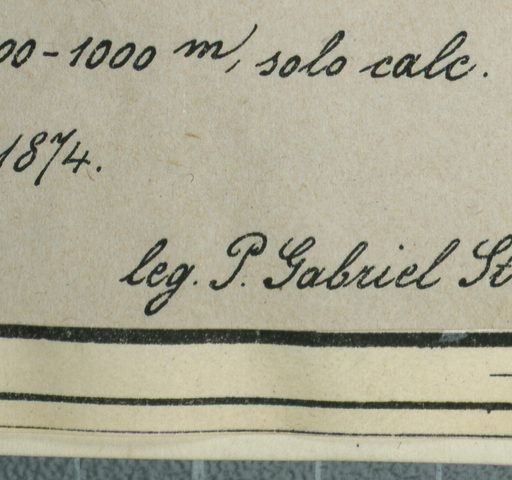 00-1000 m, solo calc.
1874.
leg. P. Gabriel St